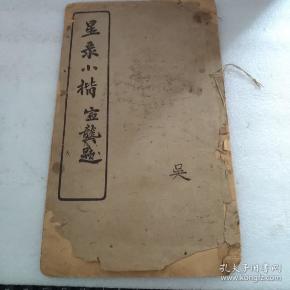 星录小楷 宣龚题
吴
孔夫子旧书网